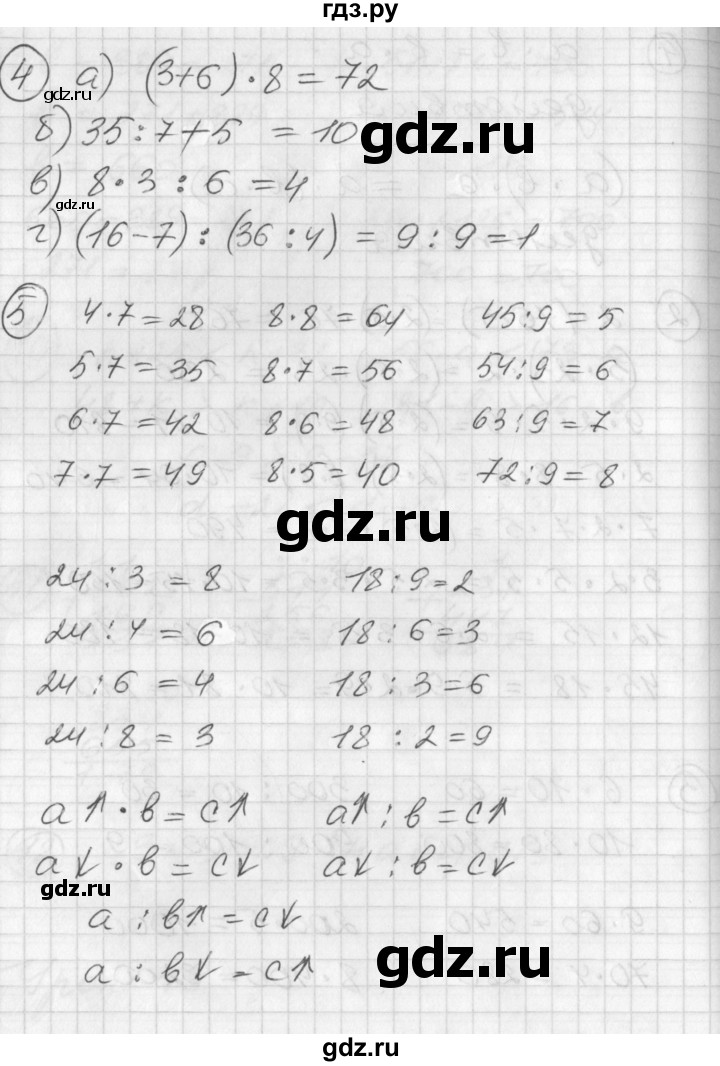 гдз.ру
4 а) (3+6)·8=72
б) 35:7+5 =10
gdz.ru
в) 8·3:6=4
gdz.ru
г) (16-7):(36:4)=9:9=1
5 4·7=28 8·8=64 45:9=5
5·7=35 8·7=56 54:9=6
6·7=42 8·6=48 63:9=7
7·7=49 8·5=40 72:9=8
gdz.ru
24:3=8 18:9=2
24:4=6 18:6=3
24:6=4 18:3=6
24:8=3 18:2=9
а↑·в=с↑ а↑:в=с↑
а↓·в=с↓ а↓:в=с↓
gdz.ru
а:в↑=с↓
gdz.ru
а:в↓=с↑
gdz.ru